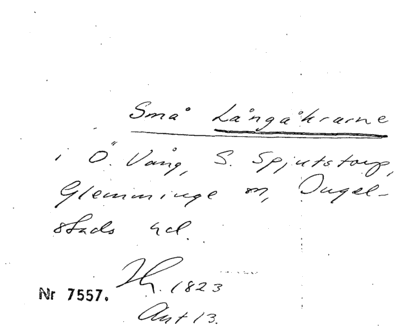 Små Långåkrarne
i Ö. Vång, S. Spjutstorp,
Glemminge m, Ingel-
stads hd.
Th. 1823
Akt 13.
Nr 7557.